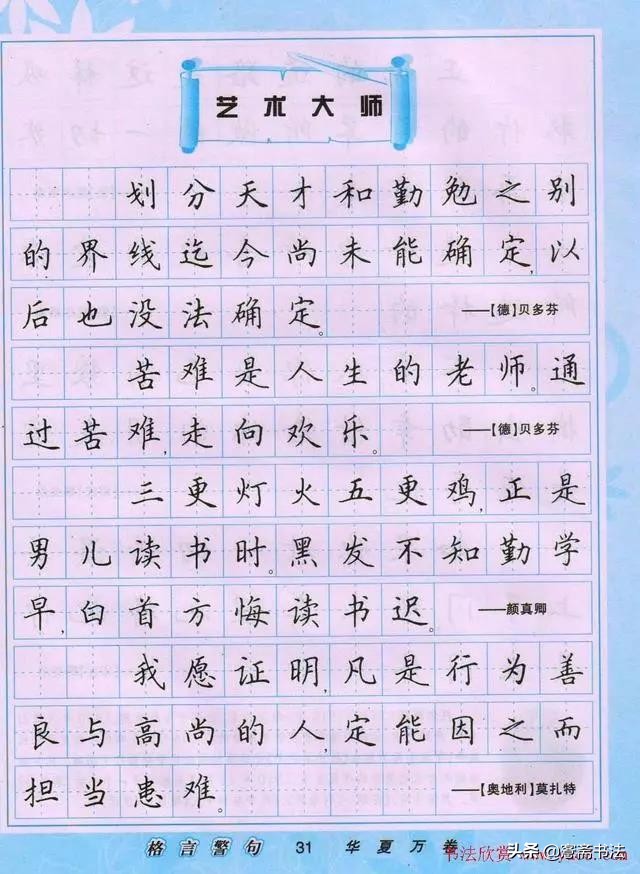 艺术大师
划分天才和勤勉之别
的界线迄今尚未能确定,以
后也没法确定。 ——[德]贝多芬
苦难是人生的老师。通
过苦难,走向欢乐。 ——[德]贝多芬
三更灯火五更鸡,正是
男儿读书时。黑发不知勤学
早,白首方悔读书迟。 ——颜真卿
我愿证明,凡是行为善
良与高尚的人,定能因之而
担当患难。 ——[奥地利]莫扎特
格言警句 31 华夏万卷
书法欣赏
头条@窓斋书法